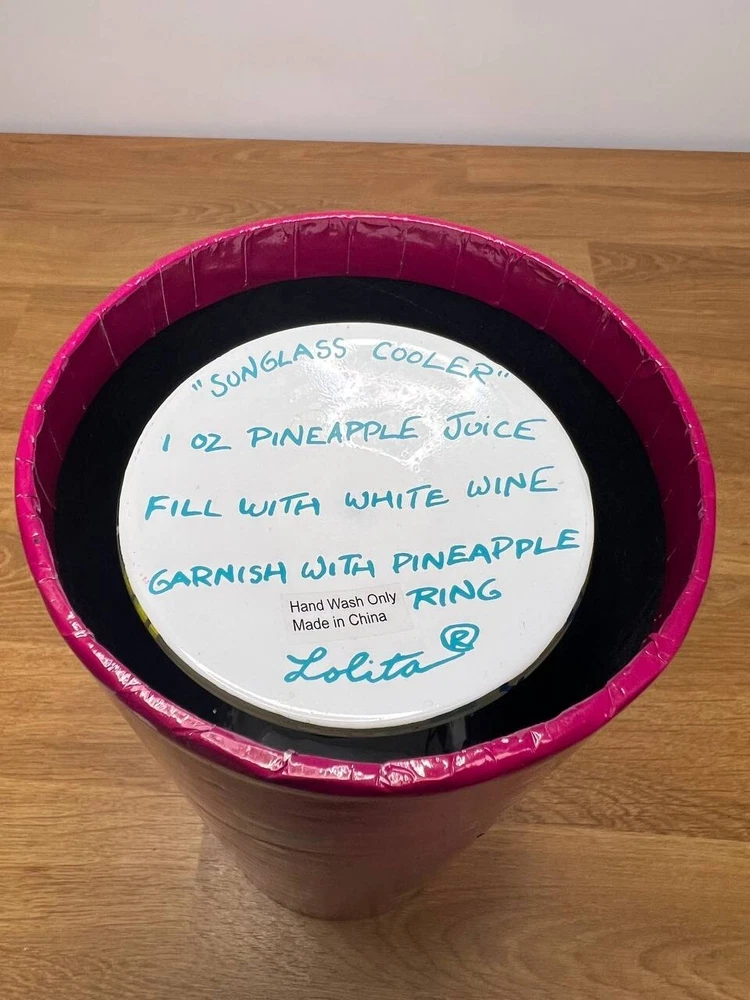 "SUNGLASS COOLER"
1 OZ PINEAPPLE JUICE
FILL WITH WHITE WINE
GARNISH WITH PINEAPPLE
RING
Hand Wash Only
Made in China
Lolita ®